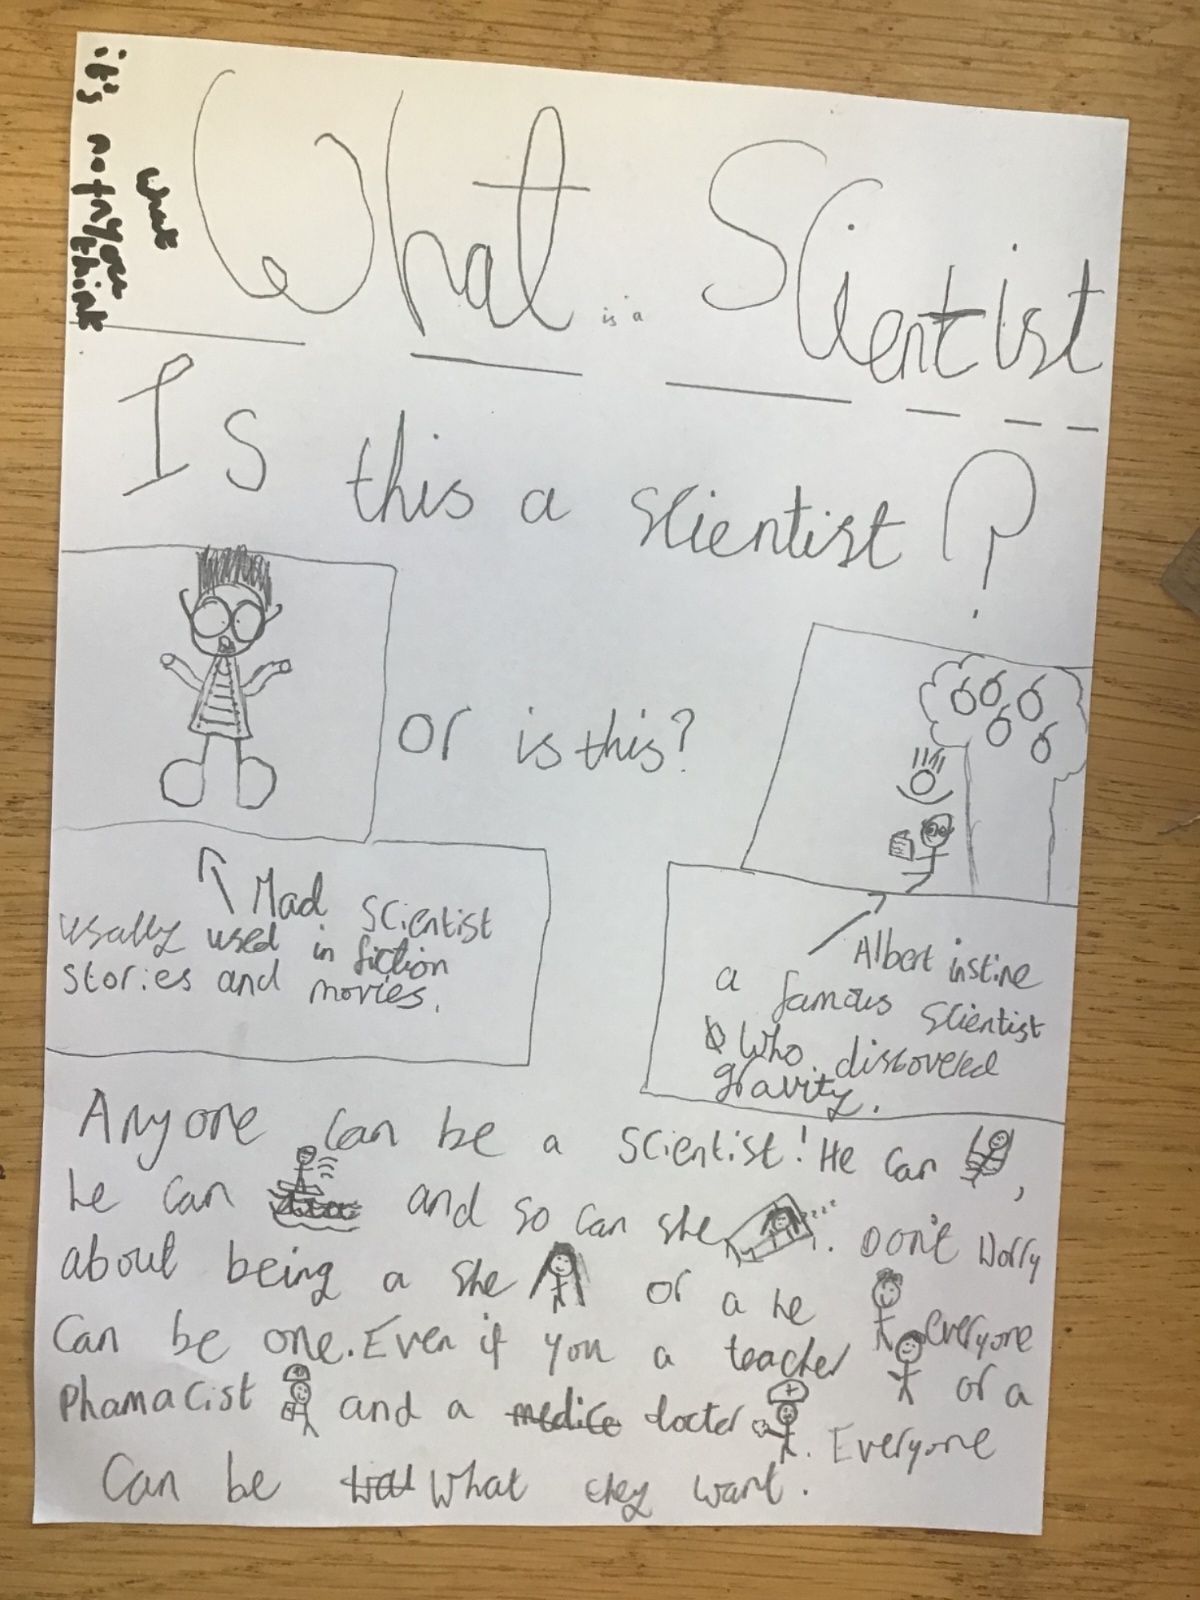 it's not what you think
What is a Scientist
Is this a scientist?
or is this?
Mad scientist
usally used in fiction
stories and movies.
Albert instine
a famous scientist
who discovered
gravity.
Anyone can be a scientist! He can ,
he can and so can she . Don't worry
about being a she or a he everyone
can be one. Even if you a teacher or a
Phamacist and a medice docter . Everyone
can be what they want.